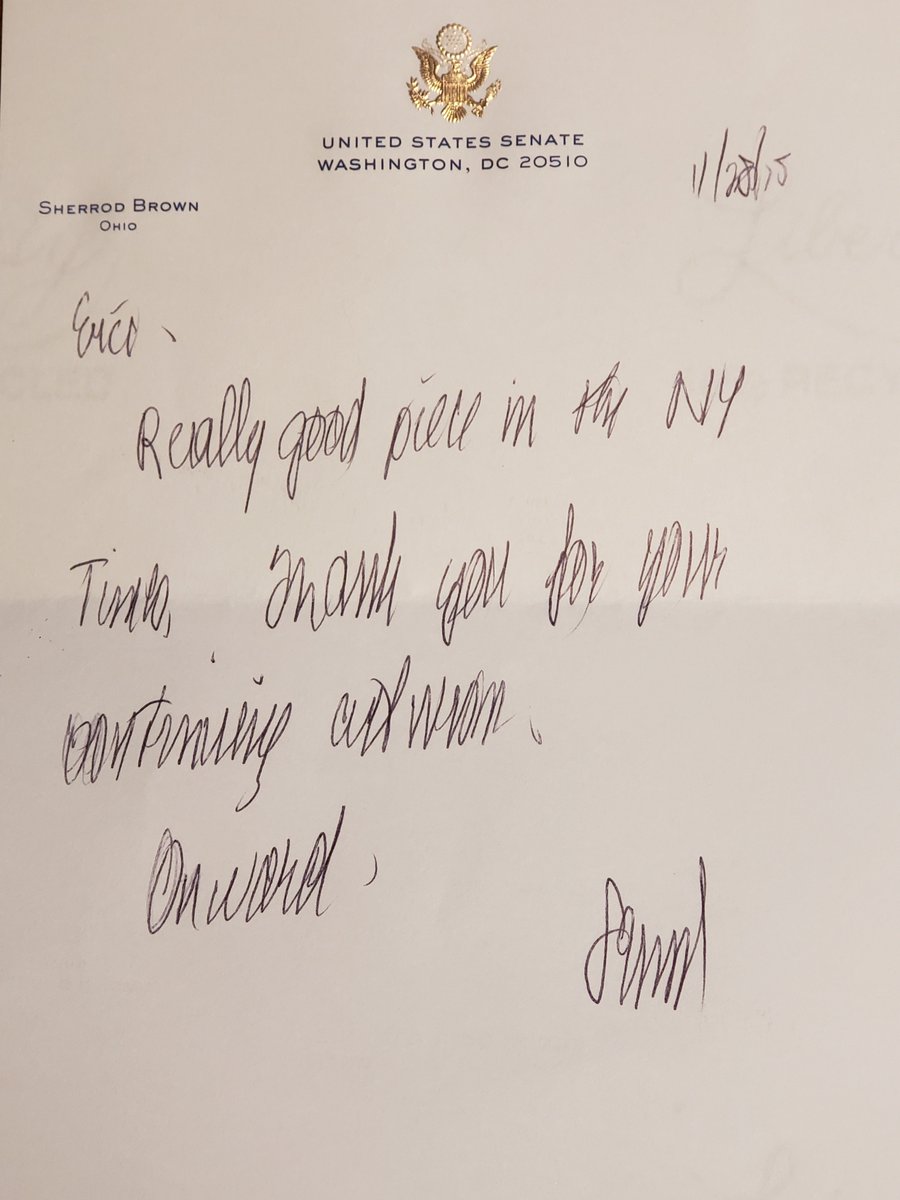 UNITED STATES SENATE
WASHINGTON, DC 20510
11/28/15
SHERROD BROWN
OHIO
Really good piece in the NY
Times. Thank you for your
continuing activism.
Onward,
Sherrod